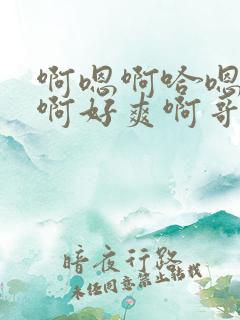 啊嗯啊哈嗯
啊好爽啊哥
暗夜行路
未经同意禁止转载